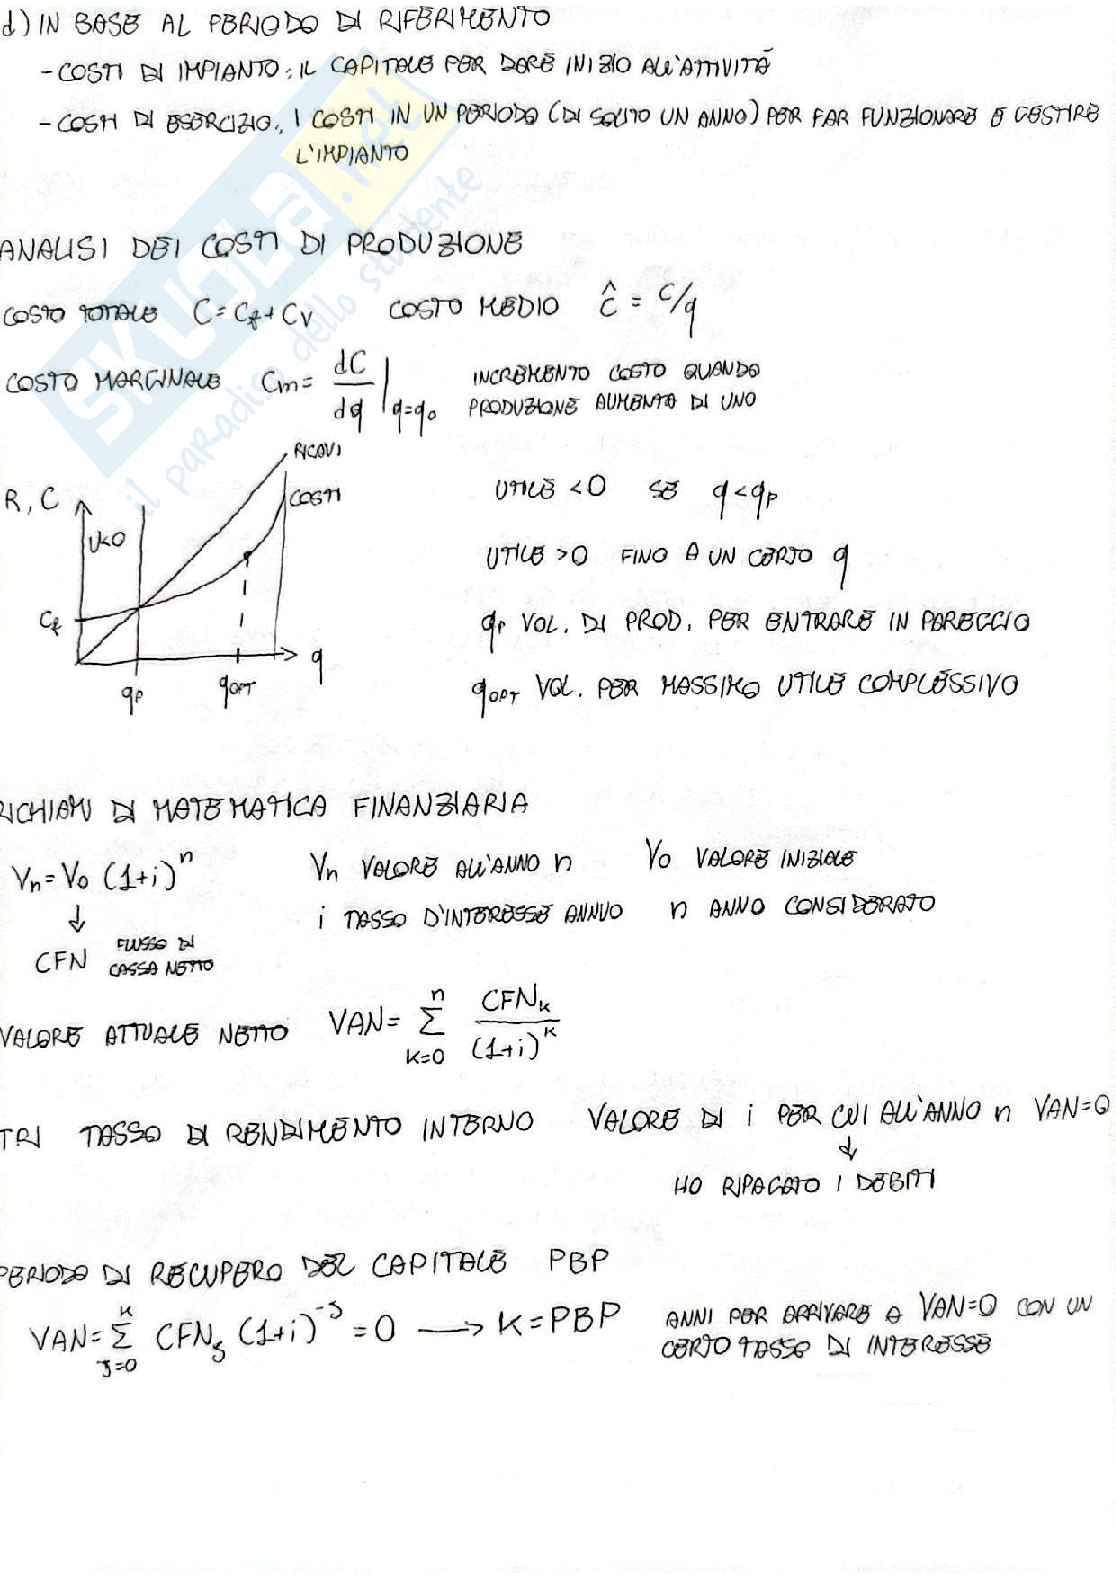 d) IN BASE AL PERIODO DI RIFERIMENTO
- COSTI DI IMPIANTO: IL CAPITALE PER DARE INIZIO ALL'ATTIVITÀ
- COSTI DI ESERCIZIO: I COSTI IN UN PERIODO (DI SOLITO UN ANNO) PER FAR FUNZIONARE E GESTIRE
L'IMPIANTO
ANALISI DEI COSTI DI PRODUZIONE
COSTO TOTALE C = Cf + Cv COSTO MEDIO ĉ = C/q
COSTO MARGINALE Cm = dC/dq |q=q0 INCREMENTO COSTO QUANDO
PRODUZIONE AUMENTA DI UNO
RICAVI
R, C
COSTI
U<0
Cf
qP
qOPT
q
UTILE < 0 SE q < qP
UTILE > 0 FINO A UN CERTO q
qP VOL. DI PROD. PER ENTRARE IN PAREGGIO
qOPT VOL. PER MASSIMO UTILE COMPLESSIVO
RICHIAMI DI MATEMATICA FINANZIARIA
Vn = V0 (1+i)^n Vn VALORE ALL'ANNO n V0 VALORE INIZIALE
i TASSO D'INTERESSE ANNUO n ANNO CONSIDERATO
↓
CFN FLUSSO DI
CASSA NETTO
VALORE ATTUALE NETTO VAN = Σ k=0 n CFNk/(1+i)^k
TRI TASSO DI RENDIMENTO INTERNO VALORE DI i PER CUI ALL'ANNO n VAN=0
↓
HO RIPAGATO I DEBITI
PERIODO DI RECUPERO DEL CAPITALE PBP
VAN = Σ J=0 K CFNJ (1+i)^-J = 0 → K = PBP ANNI PER ARRIVARE A VAN=0 CON UN
CERTO TASSO DI INTERESSE
SKUOLA.net
il paradiso dello studente